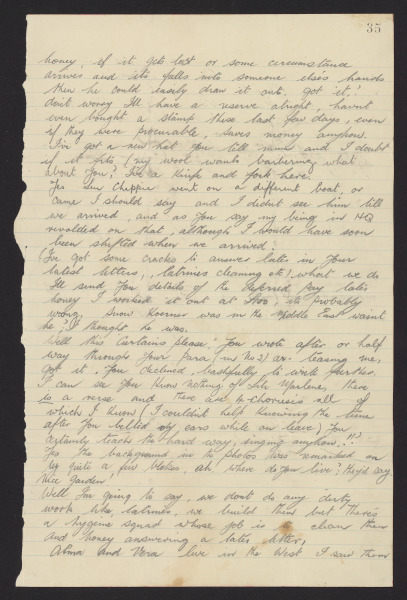 35
honey, if it gets lost or some circumstance
arrives and its falls into someone elses hands
then he could easily draw it out. Got it!
don't worry Ill have a reserve alright, havnt
even bought a stamp these last few days, even
if they were procurable, saves money anyhow.
I've got a new hat you till mum and I doubt
if it fits (my wool wants barbering, what
about you? For a knife and fork here.
Yes Len Chepper went on a different boat, or
came I should say and I didnt see him till
we arrived, and as you say my being in HQ
revolved on that, although I would have soon
been shifted when we arrived.
(I've got some cracks to answer later in your
latest letters, latrines cleaning etc! what we do
I'll send you details of the Deferred Pay later
honey I worked it out at £100, its probably
wrong, Snow was in the Middle East wasnt
he; I thought he was.
Well this Curtains please. You wrote after or half
way through your para (in No 2) ar- teasing me,
got it. You declined, bashfully to write further.
I can see you know nothing of Lili Marlene, there
is a verse and there are 4 chorusis all of
which I know (I couldn't help knowing the tune
after you belted my ears while on leave) you
certainly teach the hard way, singing anyhow.!!?
Yes the background in the photos was remarked on
by quite a few blokes, ah, where do you live? they'd say
Nice garden!
Well I'm going to say, we dont do any dirty
work like latrines, we build them but there's
a hygiene squad whose job is to clean them
and honey answering a later letter,
Alma and Vera live in the West I saw them